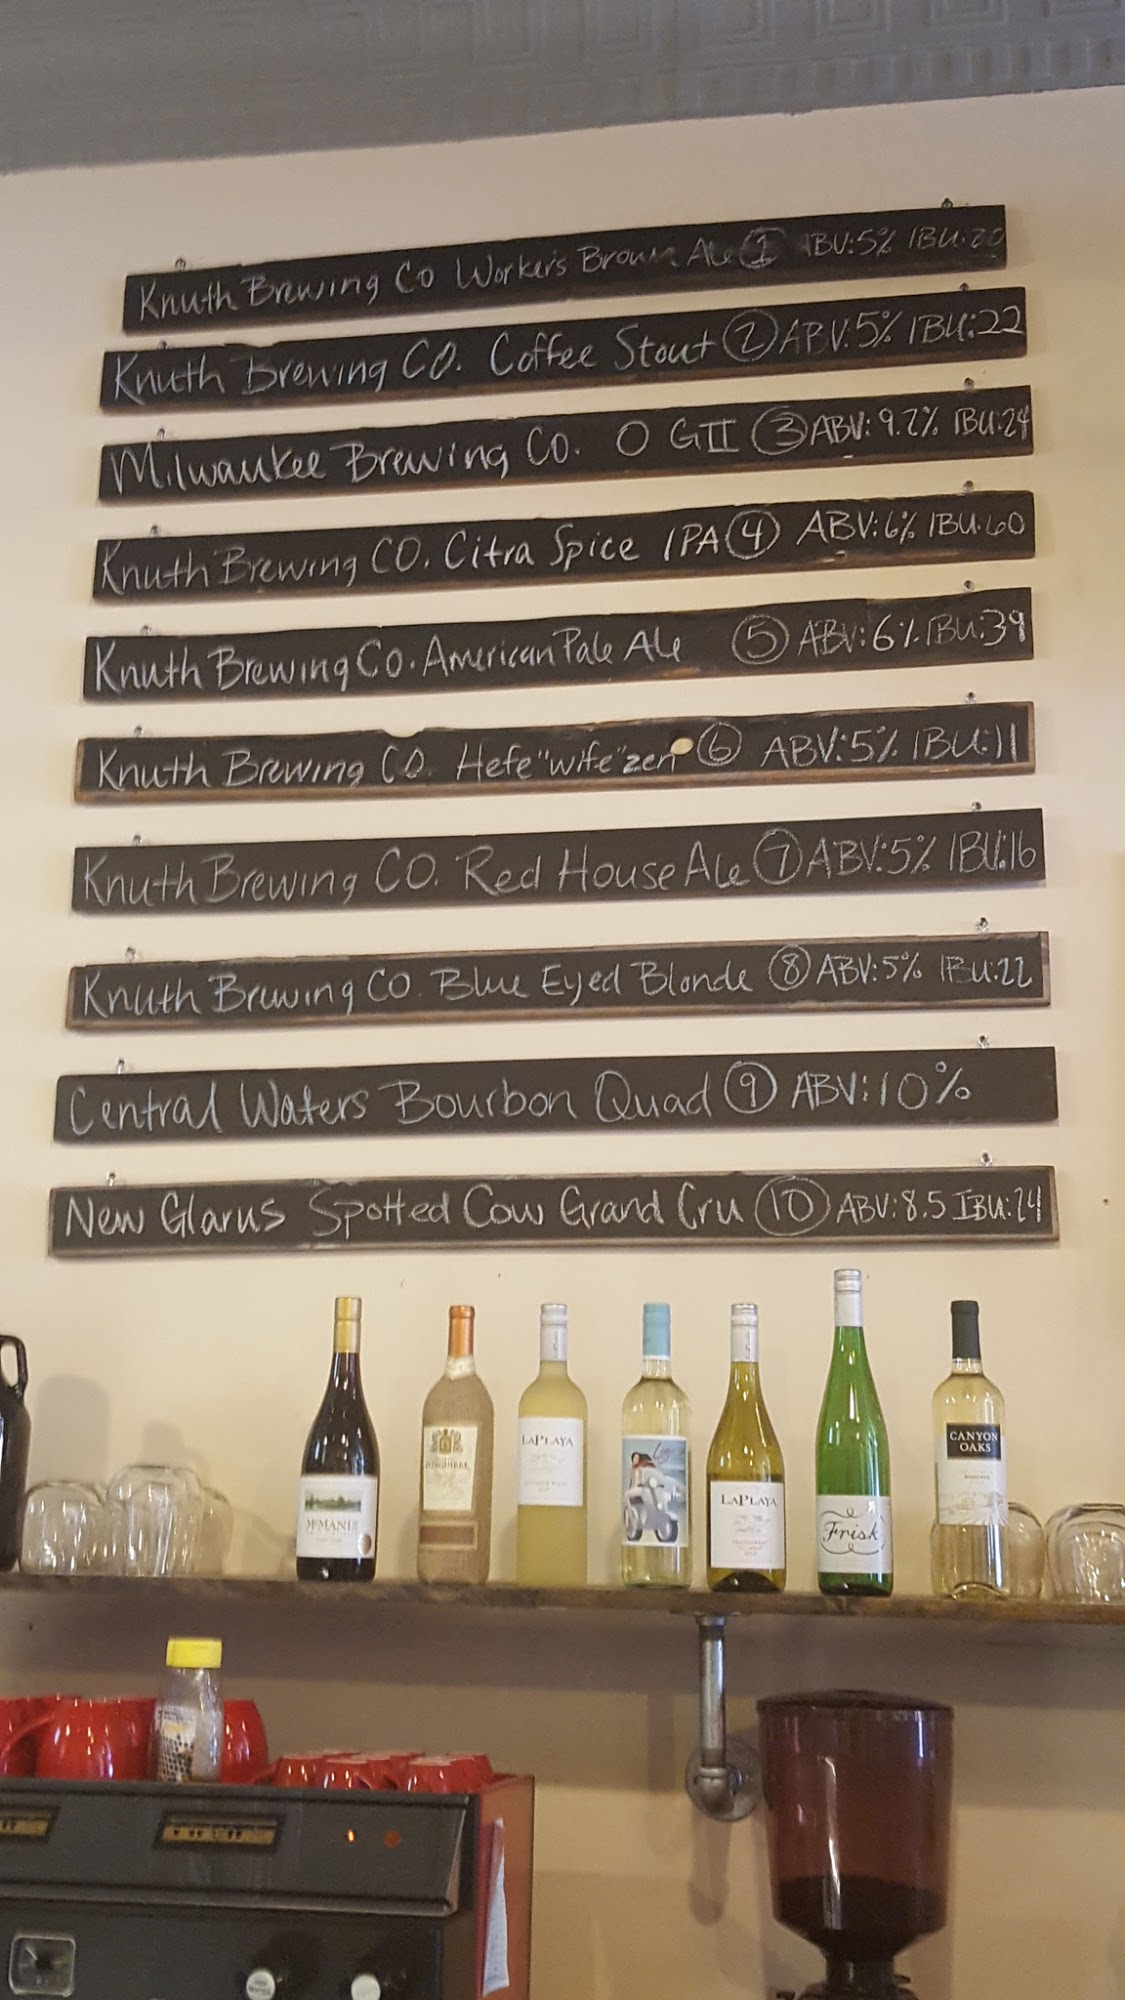 Knuth Brewing Co Worker's Brown Ale 1 ABV:5% IBU:20
Knuth Brewing CO. Coffee Stout 2 ABV:5% IBU:22
Milwaukee Brewing Co. O GII 3 ABV: 9.2% IBU:24
Knuth Brewing CO. Citra Spice IPA 4 ABV:6% IBU:60
Knuth Brewing CO. American Pale Ale 5 ABV:6% IBU:39
Knuth Brewing CO. Hefe"wife"zen 6 ABV:5% IBU:11
Knuth Brewing CO. Red House Ale 7 ABV:5% IBU:16
Knuth Brewing CO. Blue Eyed Blonde 8 ABV:5% IBU:22
Central Waters Bourbon Quad 9 ABV:10%
New Glarus Spotted Cow Grand Cru 10 ABV:8.5 IBU:24
McMANIS
LAPLAYA
LAPLAYA
Frisk
CANYON
OAKS